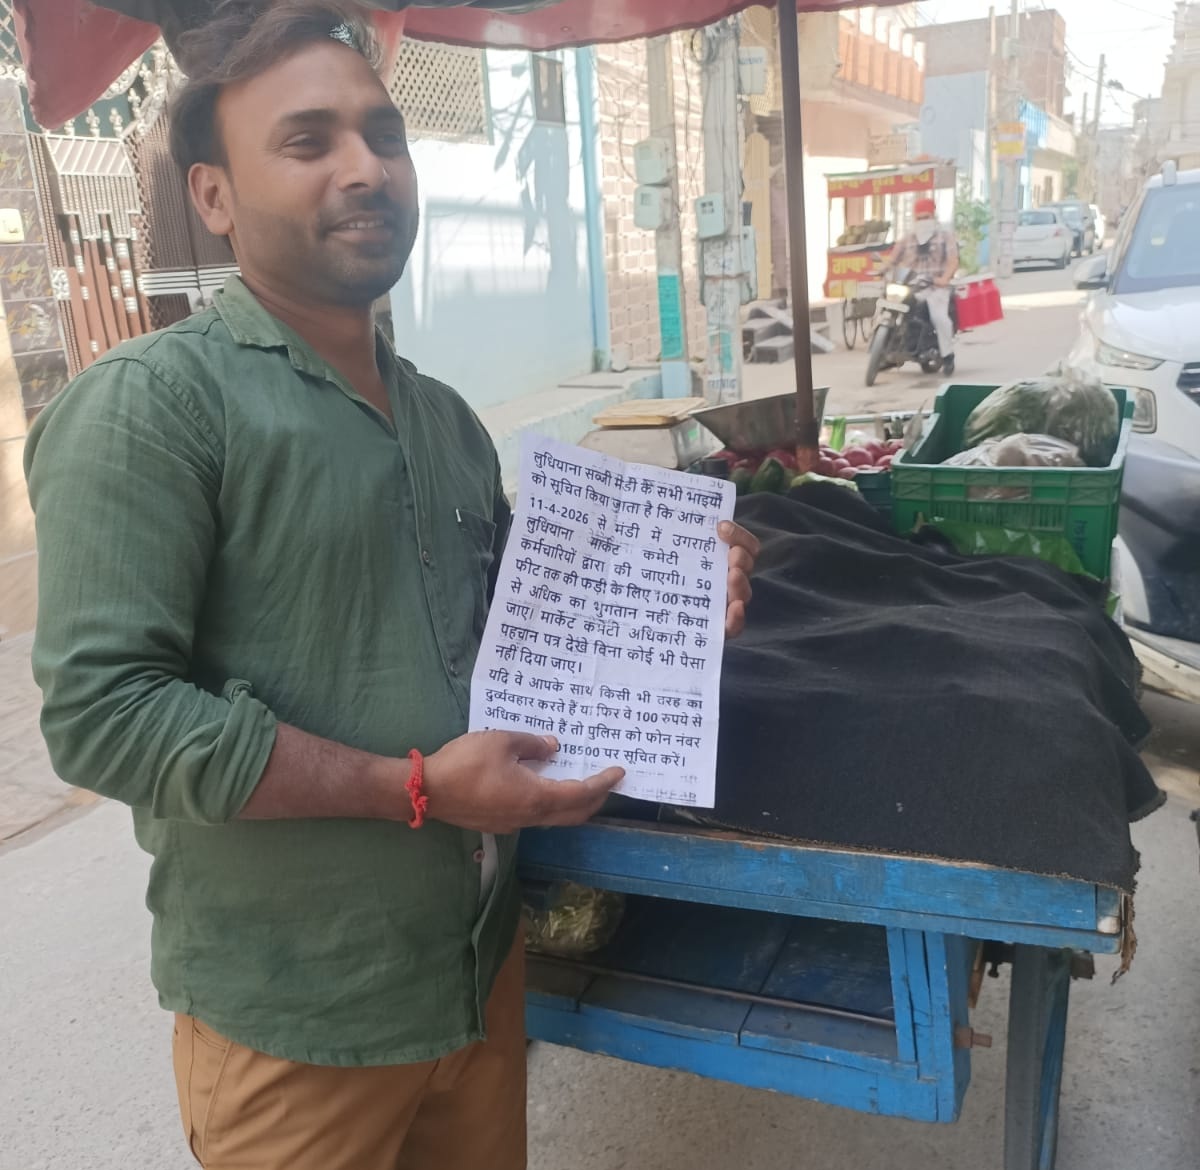 लुधियाना सब्जी मंडी के सभी भाइयों
को सूचित किया जाता है कि आज
11-4-2026 से मंडी में उगराही
लुधियाना मार्केट कमेटी के
कर्मचारियों द्वारा की जाएगी। 50
फीट तक की फड़ी के लिए 100 रुपये
से अधिक का भुगतान नहीं किया
जाए। मार्केट कमेटी अधिकारी के
पहचान पत्र देखे बिना कोई भी पैसा
नहीं दिया जाए।
यदि वे आपके साथ किसी भी तरह का
दुर्व्यवहार करते हैं या फिर वे 100 रुपये से
अधिक मांगते हैं तो पुलिस को फोन नंबर
018500 पर सूचित करें।